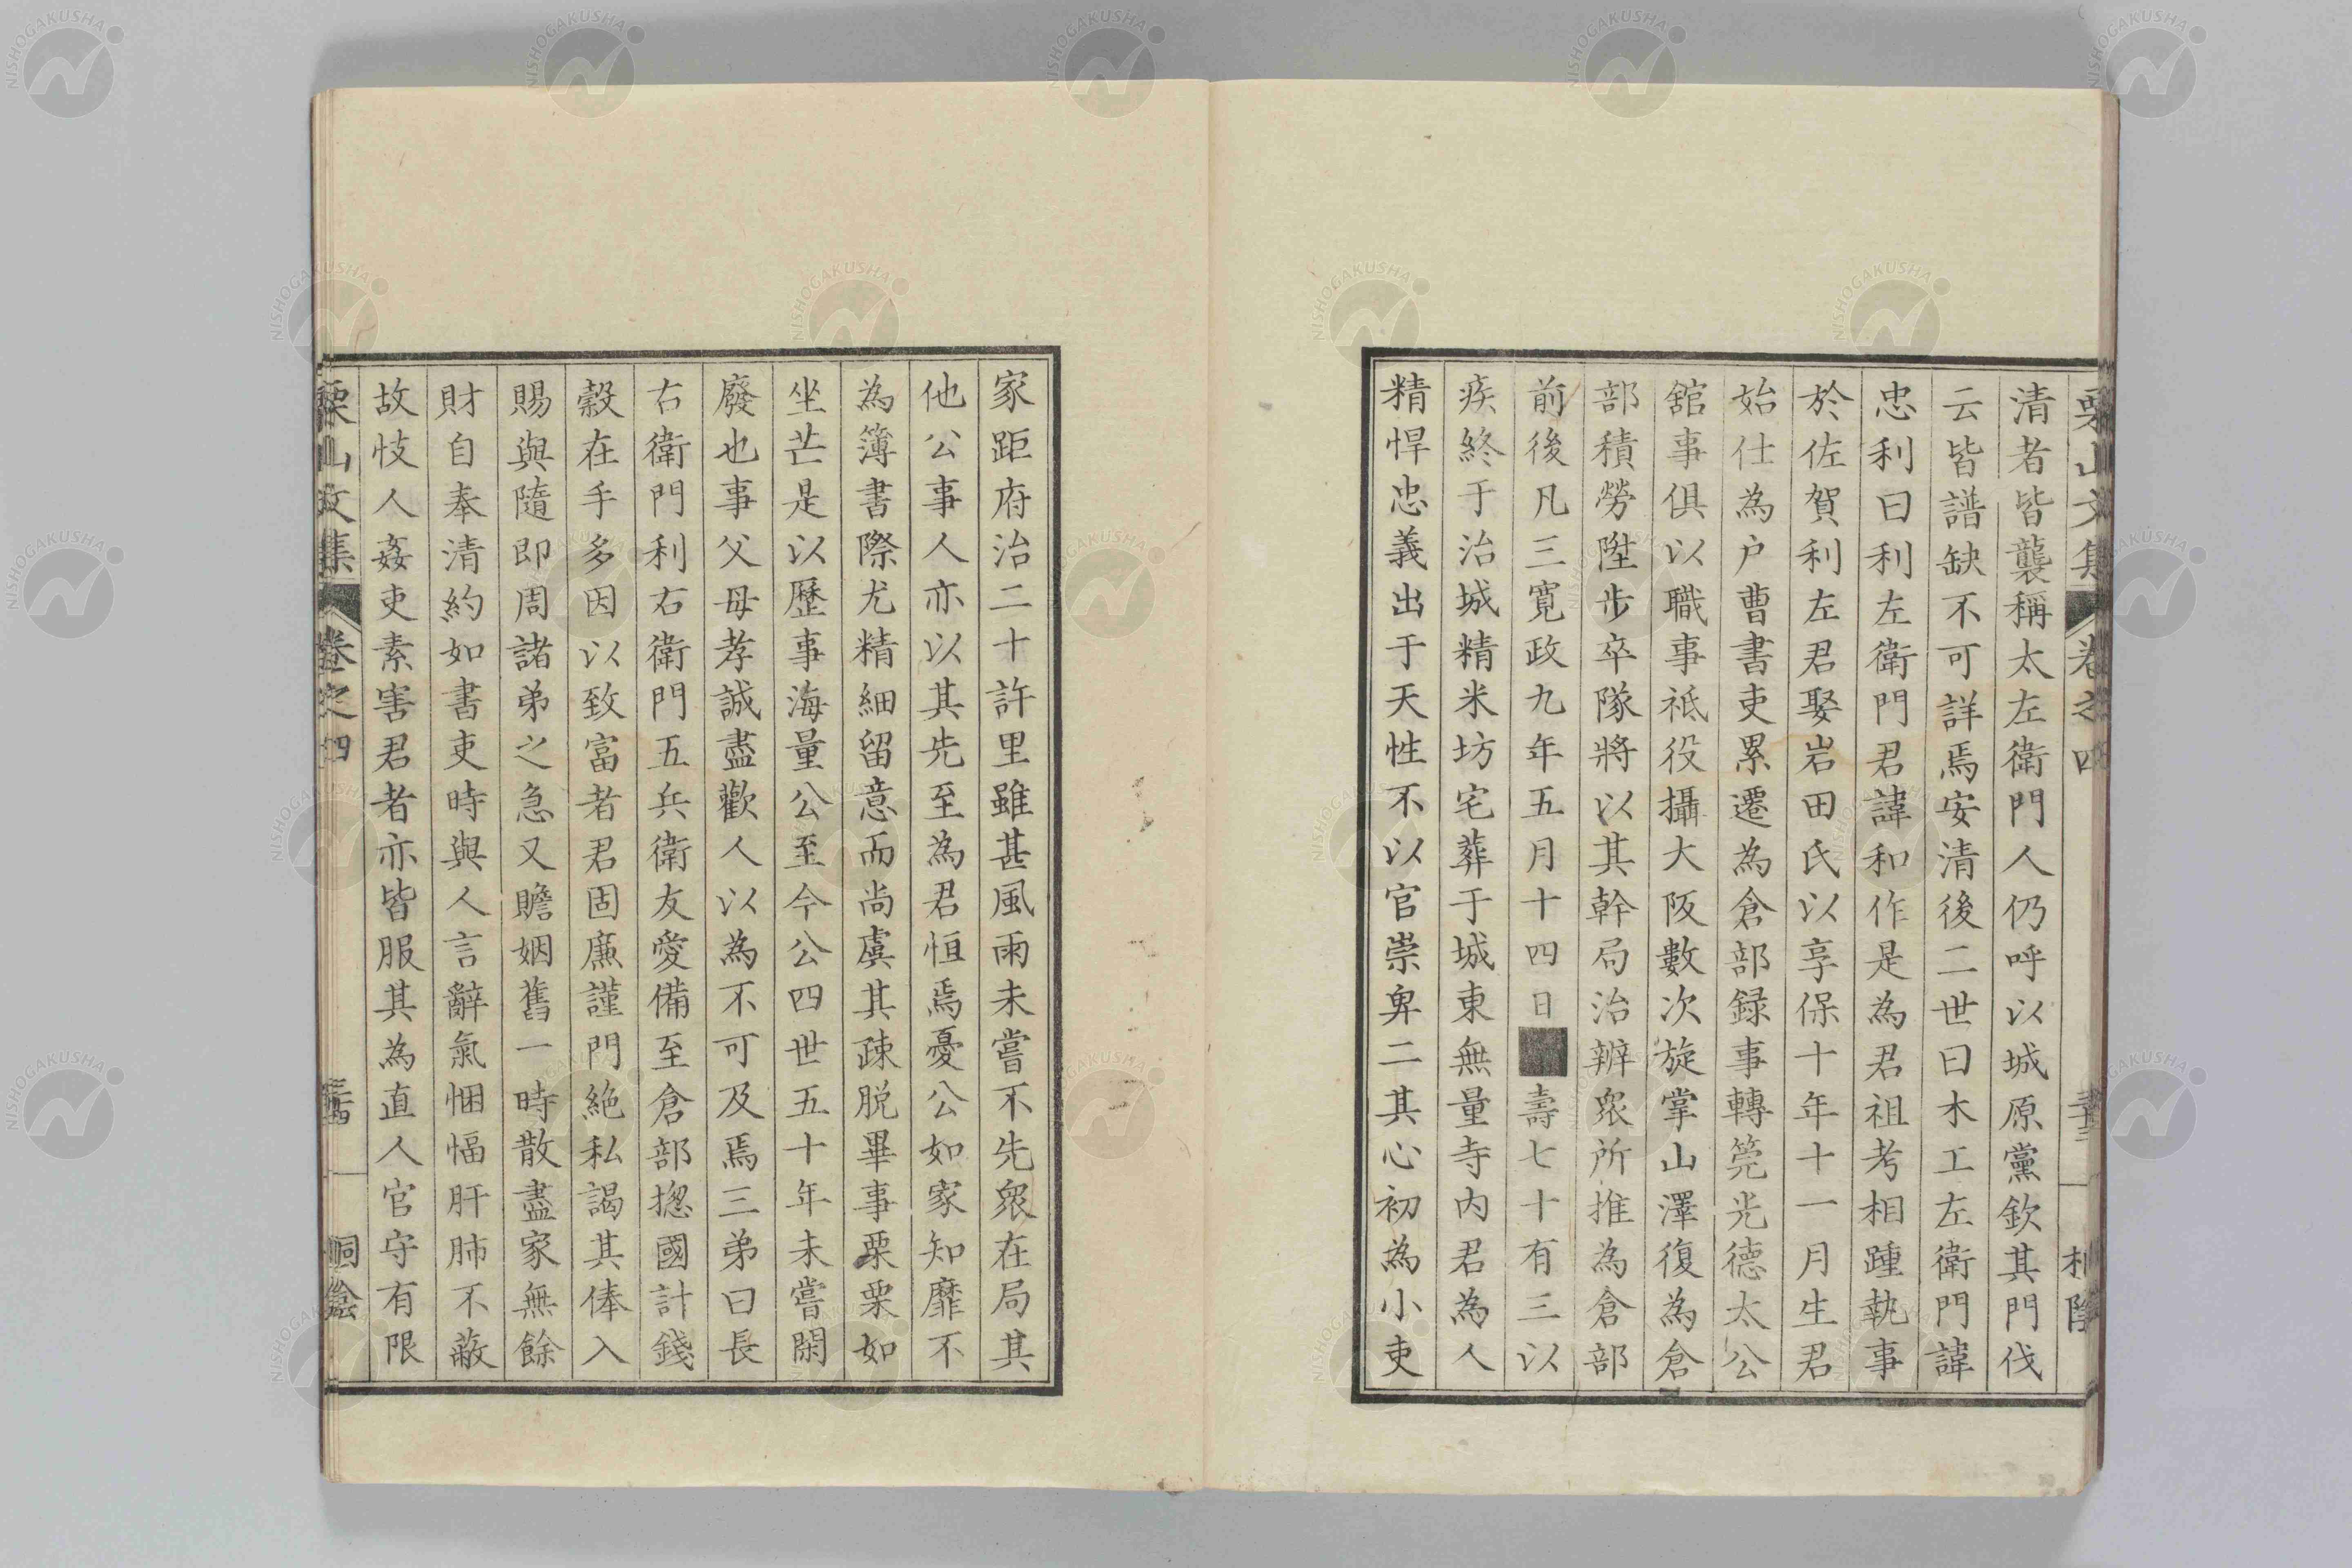 栗山文集 卷之四
清者皆襲稱太左衛門人仍呼以城原黨欽其門伐
云皆譜缺不可詳焉安清後二世曰木工左衛門諱
忠利曰利左衛門君諱和作是為君祖考相踵執事
於佐賀利左君娶岩田氏以享保十年十一月生君
始仕為户曹書吏累遷為倉部録事轉筦光德太公
舘事俱以職事祗役攝大阪數次旋掌山澤復為倉
部積勞陞步卒隊將以其幹局治辨衆所推為倉部
前後凡三寛政九年五月十四日■壽七十有三以
疾終于治城精米坊宅葬于城東無量寺内君為人
精悍忠義出于天性不以官崇卑二其心初為小吏
家距府治二十許里雖甚風雨未嘗不先衆在局其
他公事人亦以其先至為君恒焉憂公如家知靡不
為簿書際尤精細留意而尚虞其疎脱畢事栗栗如
坐芒是以歷事海量公至今公四世五十年未嘗閑
廢也事父母孝誠盡歡人以為不可及焉三弟曰長
右衛門利右衛門五兵衛友愛備至倉部揔國計錢
穀在手多因以致富者君固廉謹門絶私謁其俸入
賜與隨即周諸弟之急又贍姻舊一時散盡家無餘
財自奉清約如書吏時與人言辭氣悃愊肝肺不蔽
故忮人姦吏素害君者亦皆服其為直人官守有限
栗山文集 卷之四
NISHOGAKUSHA